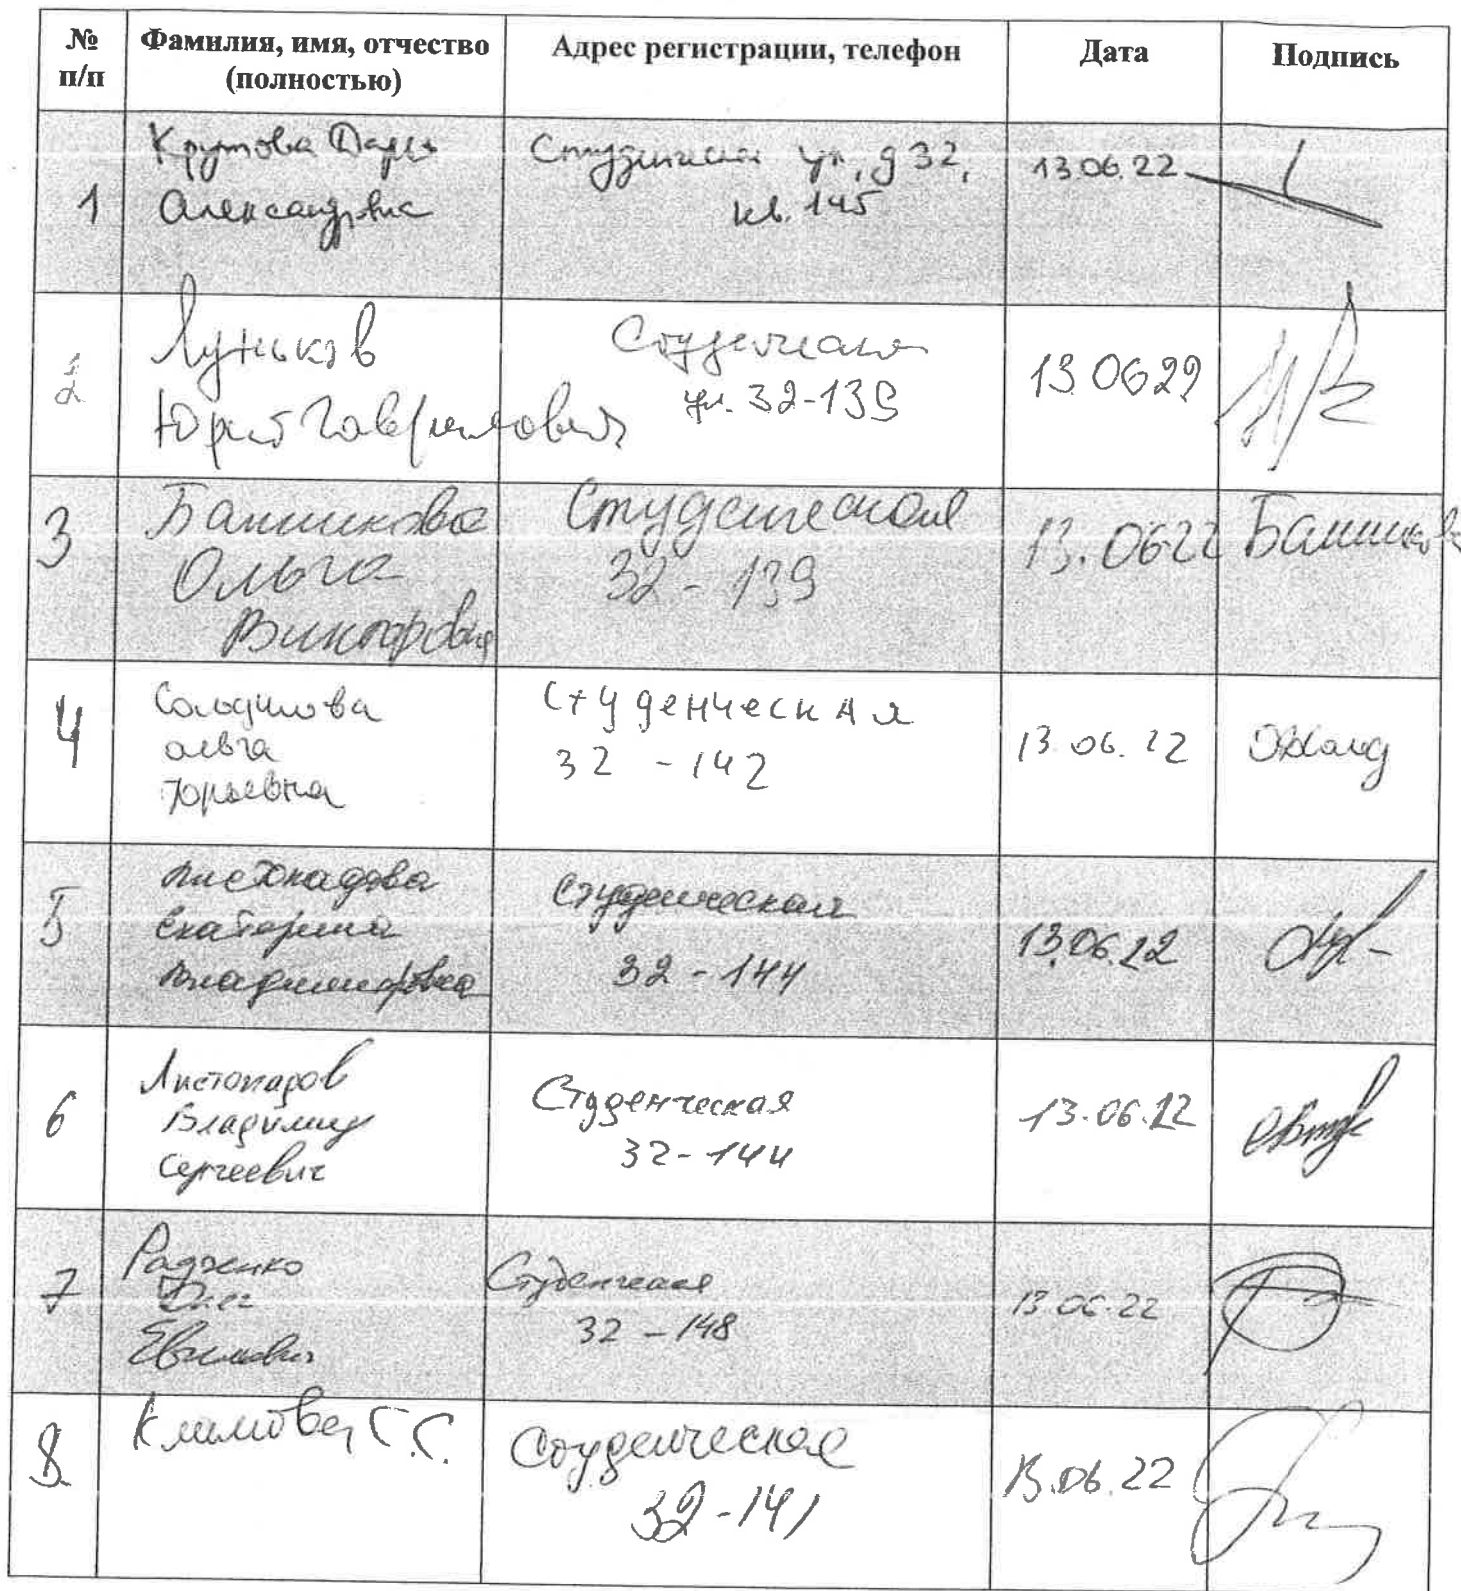 № п/п
Фамилия, имя, отчество (полностью)
Адрес регистрации, телефон
Дата
Подпись
1
Крутова Дарья
Александровна
ул, д 32,
кв. 145
13.06.22
2
Луньков
Юрий Гаврилович
Студенческая
ул. 32-139
13.06.22
3
Банникова
Ольга
Викторовна
Студенческая
32-139
13.06.22
4
Ольга
Юрьевна
Студенческая
32-142
13.06.22
5
Листопадова
Екатерина
Владимировна
Студенческая
32-144
13.06.22
6
Листопадов
Владимир
Сергеевич
Студенческая
32-144
13.06.22
7
Радченко
Олег
Студенческая
32-148
13.06.22
8.
Климова Г.С.
Студенческая
32-141
13.06.22